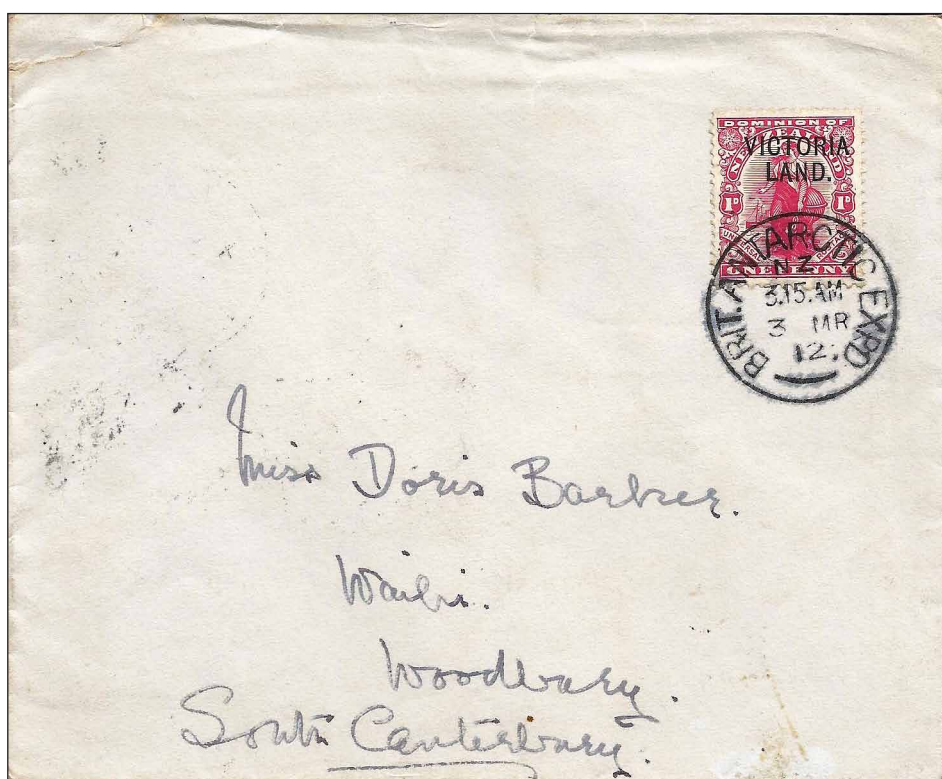 DOMINION OF
NEW ZEALAND
VICTORIA
LAND.
1D 1D
UNIVERSAL POSTAGE
ONE PENNY
BRIT. ANTARCTIC EXPD
N Z
3.15.AM
3 MR
12.
Miss Doris Barker.
Waihi.
Woodbury.
South Canterbury.